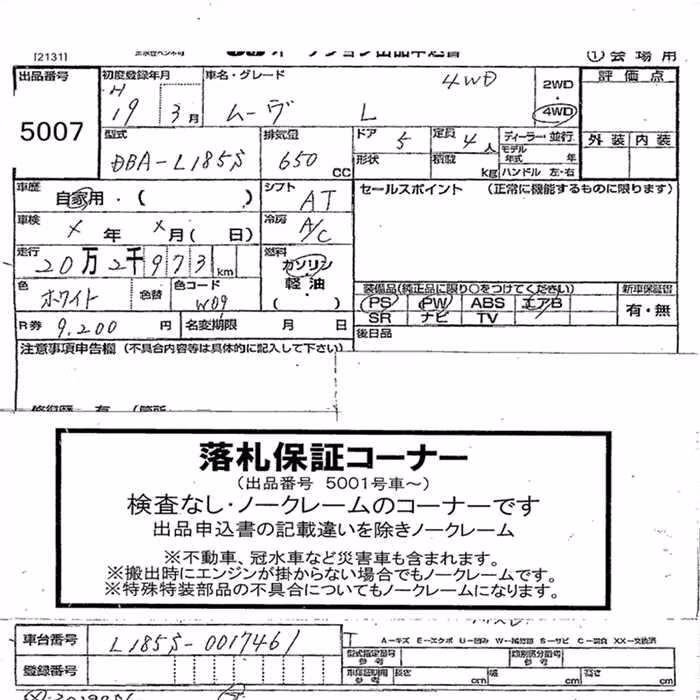 [2131] オークション出品申込書 ①会場用
出品番号 初度登録年月 車名・グレード 4WD 2WD・4WD 評価点
5007 H 19 3月 ムーヴ L
型式 排気量 ドア 5 定員 4人 ディーラー・並行 外装 内装
DBA-L185S 650cc 形状 積載 kg モデル年式 年 ハンドル 左・右
車歴 自家用・( ) シフト AT セールスポイント (正常に機能するものに限ります)
車検 X年 X月( 日) 冷房 A/C
走行 20万2千973km 燃料 ガソリン 軽・油 ( )
色 ホワイト 色替 色コード W09
装備品(純正品に限り○をつけてください) 新車保証書
PS PW ABS エアB 有・無
SR ナビ TV
R券 9,200円 名変期限 月 日 後日品
注意事項申告欄 (不具合内容等は具体的に記入して下さい)
落札保証コーナー
(出品番号 5001号車~)
検査なし・ノークレームのコーナーです
出品申込書の記載違いを除きノークレーム
※不動車、冠水車など災害車も含まれます。
※搬出時にエンジンが掛からない場合でもノークレームです。
※特殊特装部品の不具合についてもノークレームになります。
車台番号 L185S-0017461
A-キズ E-エクボ U-凹み W-補修跡 S-サビ C-腐食 XX-交換済
型式指定番号 参考 類別区分番号 参考
登録番号 長さ cm 幅 cm 高さ cm